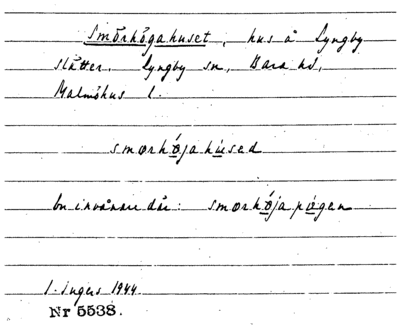 Smörhögahuset, hus å Lyngby
slätter. Lyngby sn, Bara hd,
Malmöhus l.
smœrhöjahused
bn invånare där: smœrhöjapögen
I. Ingers 1944.
Nr 5538.